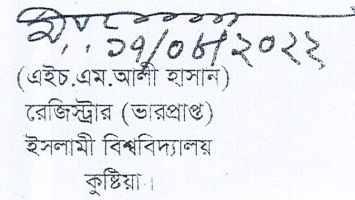 ১৭/০৮/২০২২
(এইচ.এম.আলী হাসান)
রেজিস্ট্রার (ভারপ্রাপ্ত)
ইসলামী বিশ্ববিদ্যালয়
কুষ্টিয়া।